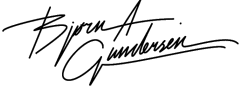 Bjørn A
Gundersen